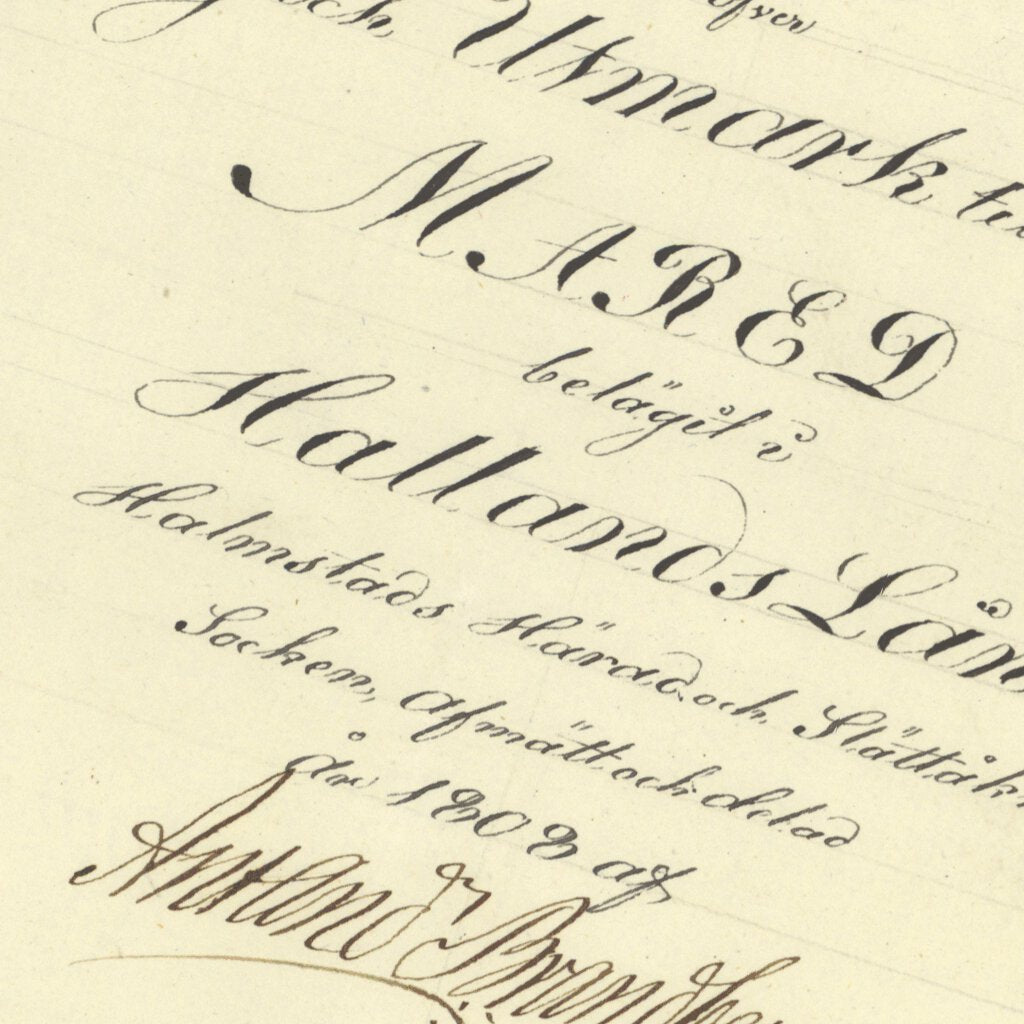 öfver
och Utmark till
MARED
belägit i
Hallands Län
Halmstads Härad och Slättåk
Socken, afmätt och delad
år 1808 af